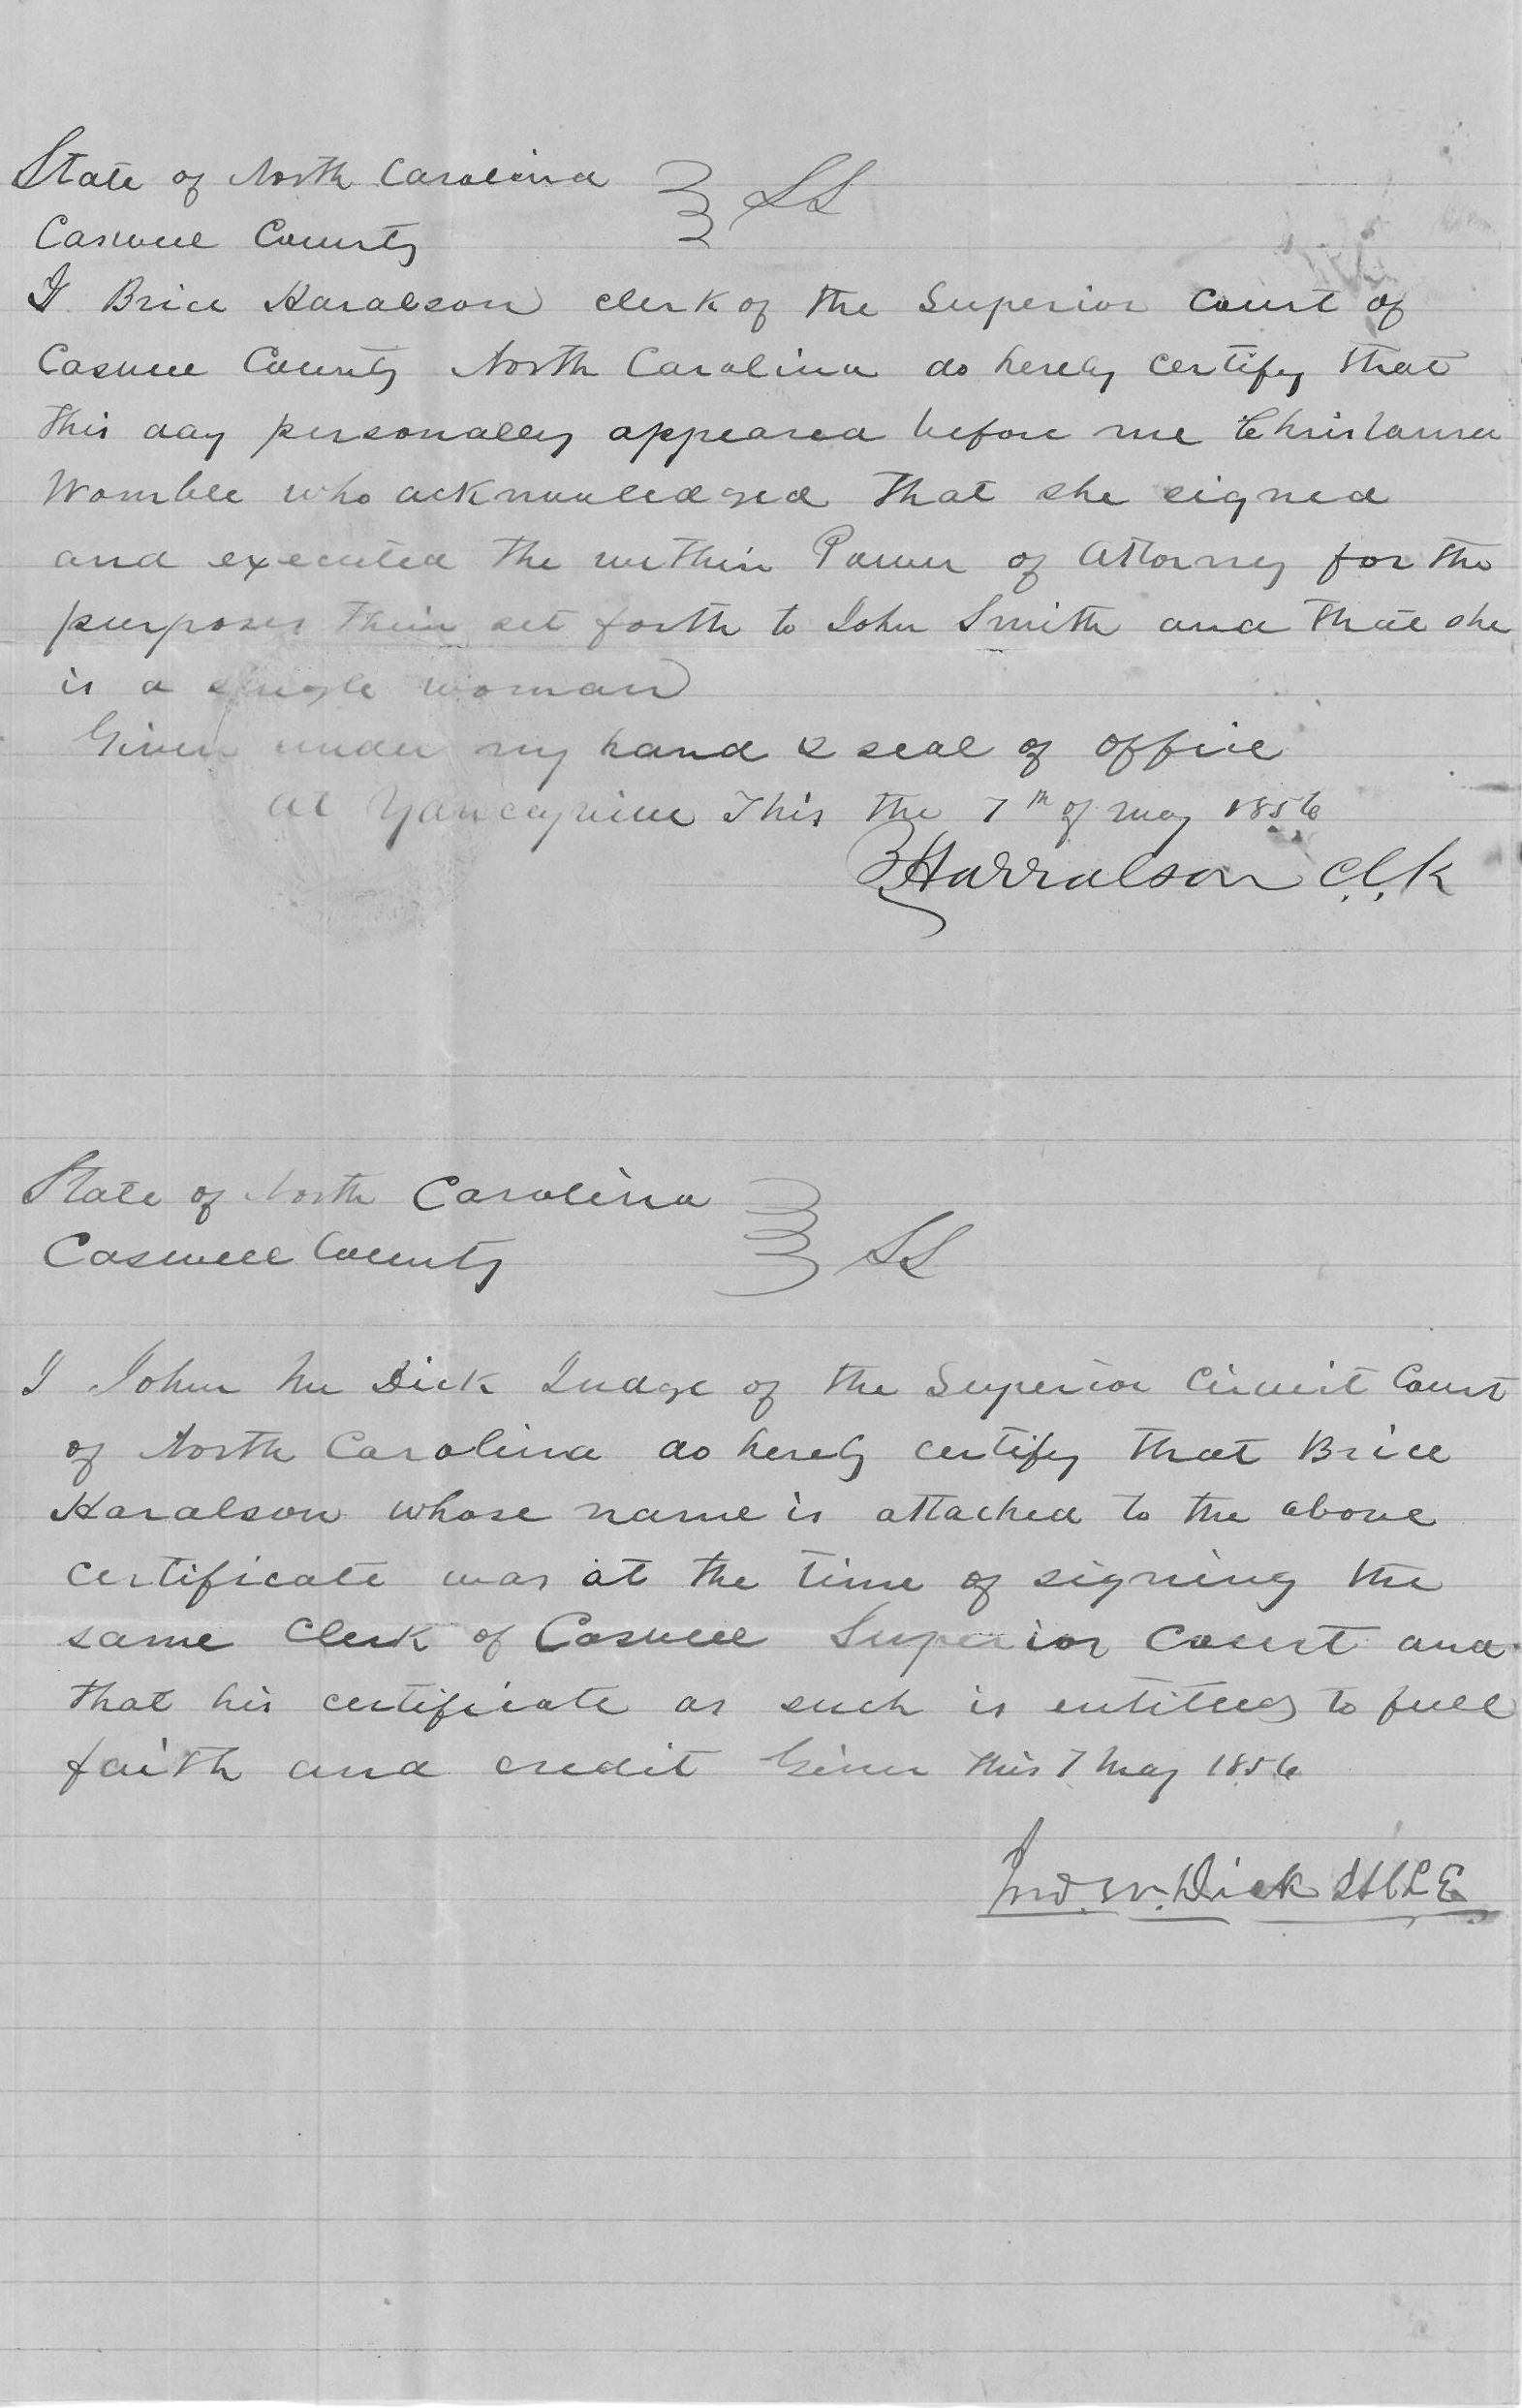 State of North Carolina } SS
Caswell County
I Brice Haralson clerk of the Superior Court of
Caswell County North Carolina do hereby certify that
this day personally appeared before me
Womble who acknowledged that she signed
and executed the within Power of Attorney for the
purposes therin set forth to John Smith and that she
is a single woman
Given under my hand & seal of office
at Yanceyville This the 7th of May 1856
B Harralson C.l.k
State of North Carolina } SS
Caswell County
I John M Dick Judge of the Superior Circuit Court
of North Carolina do hereby certify that Brice
Haralson whose name is attached to the above
certificate was at the time of signing the
same Clerk of Caswell Superior Court and
that his certificate as such is entitled to full
faith and credit Given this 7 May 1856
Jno. M. Dick